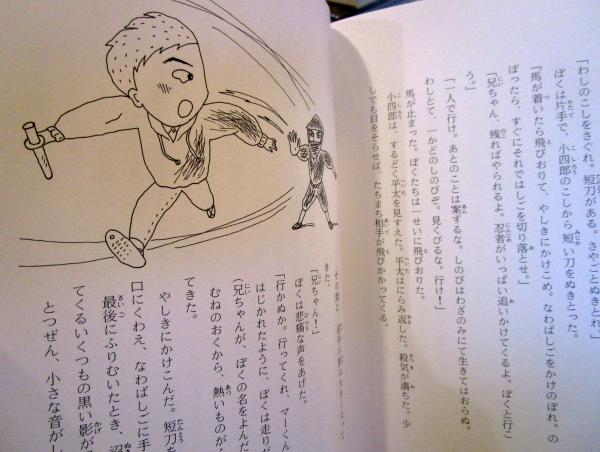 「わしのこしをさぐれ。短刀がある。さやごとぬきとれ。」
ぼくは片手で、小四郎のこしから短い刀をぬきとった。
「馬が着いたら飛びおりて、やしきにかけこめ。なわばしごをかけのぼれ。の
ぼったら、すぐにそれではしごを切り落とせ。」
「兄ちゃん、残ればやられるよ。忍者がいっぱい追いかけてくるよ。ぼくと行こ
う。」
「一人で行け。あとのことは案ずるな。しのびはわざのみにて生きてはおらぬ。
わしとて、一かどのしのびぞ。見くびるな。行け!」
馬が止まった。ぼくたちは一せいに飛びおりた。
小四郎は、するどく平太を見すえた。平太はにらみ返した。殺気が満ちた。少
しでも目をそらせば、たちまち相手が飛びかかってくる。
きた。
「兄ちゃん!」
ぼくは悲痛な声をあげた。
「行かぬか。行ってくれ、マーくん
はじかれたように、ぼくは走りが
(兄ちゃんが、ぼくの名をよんだ
むねのおくから、熱いものが
てきた。
やしきにかけこんだ。短刀を
口にくわえ、なわばしごに手
最後にふりむいたとき、沼
てくるいくつもの黒い影が
とつぜん、小さな音がし